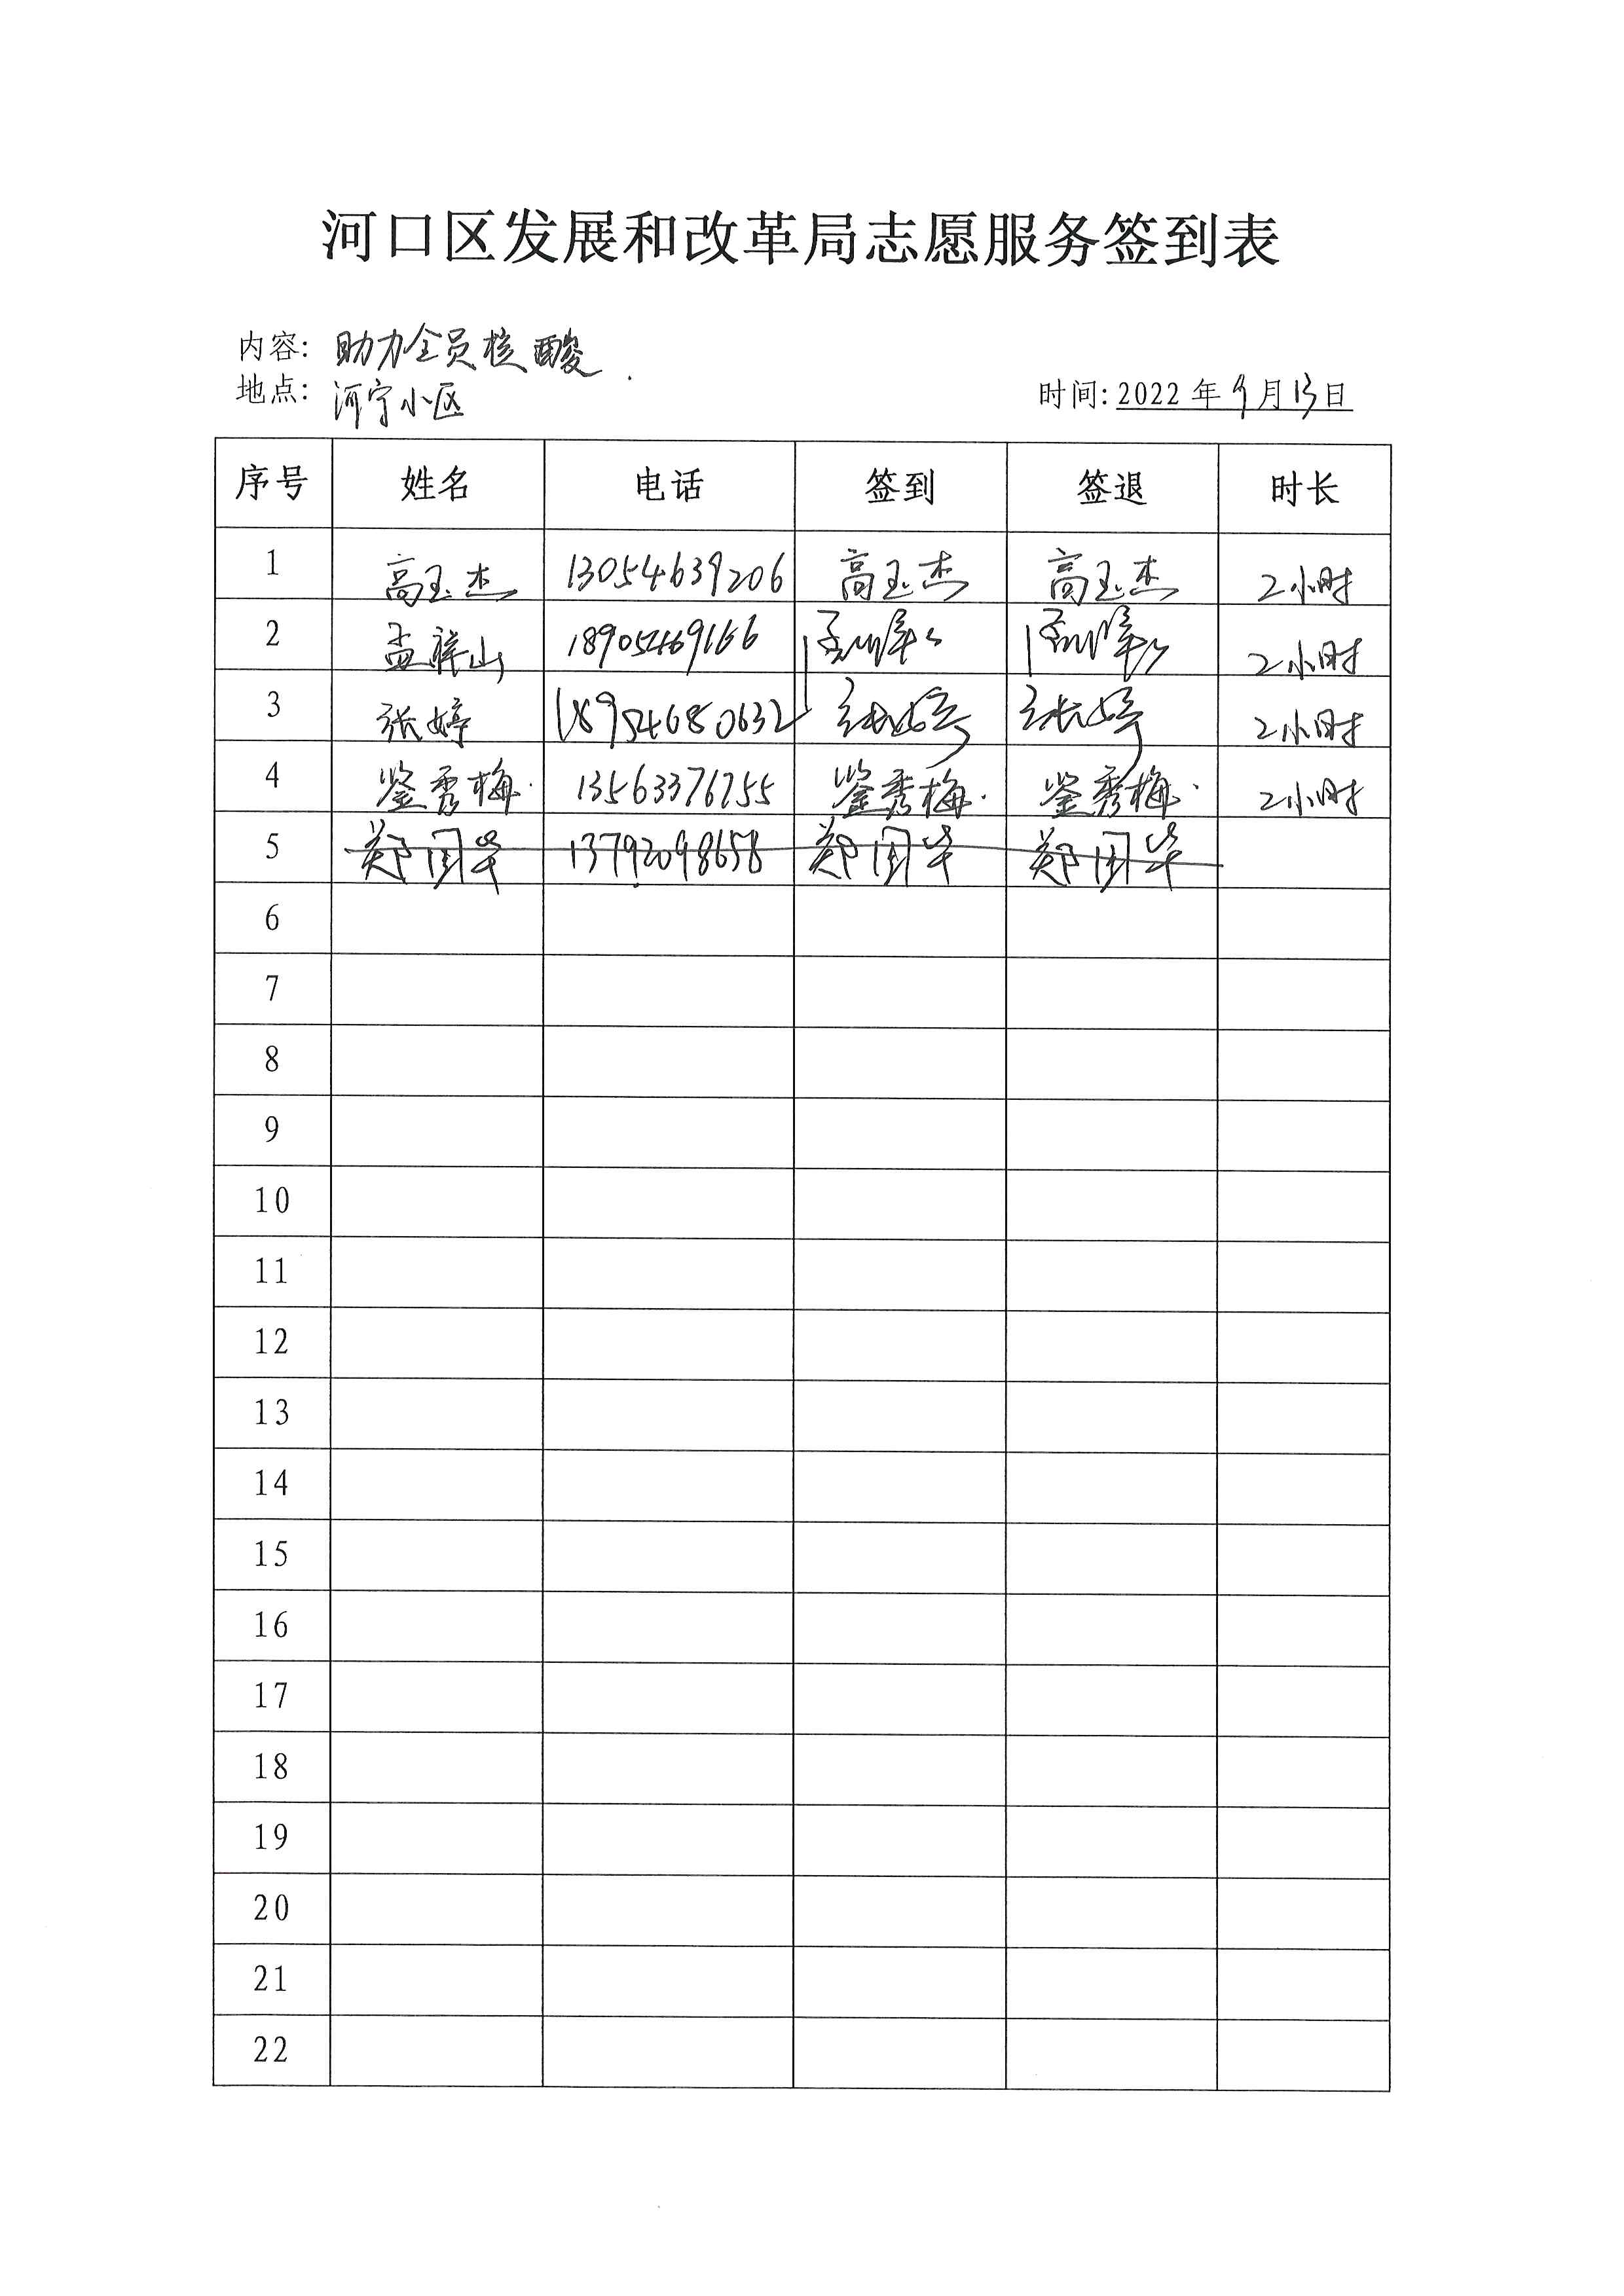 河口区发展和改革局志愿服务签到表
内容: 助力全员核酸.
地点: 河宁小区 时间: 2022年9月13日
序号 姓名 电话 签到 签退 时长
1 高玉杰 13054639206 高玉杰 高玉杰 2小时
2 孟祥山 18905469166 2小时
3 张婷 18954680632 张婷 张婷 2小时
4 鉴秀梅 13563376755 鉴秀梅 鉴秀梅 2小时
5 郑国华 13792098658 郑国华 郑国华
6
7
8
9
10
11
12
13
14
15
16
17
18
19
20
21
22